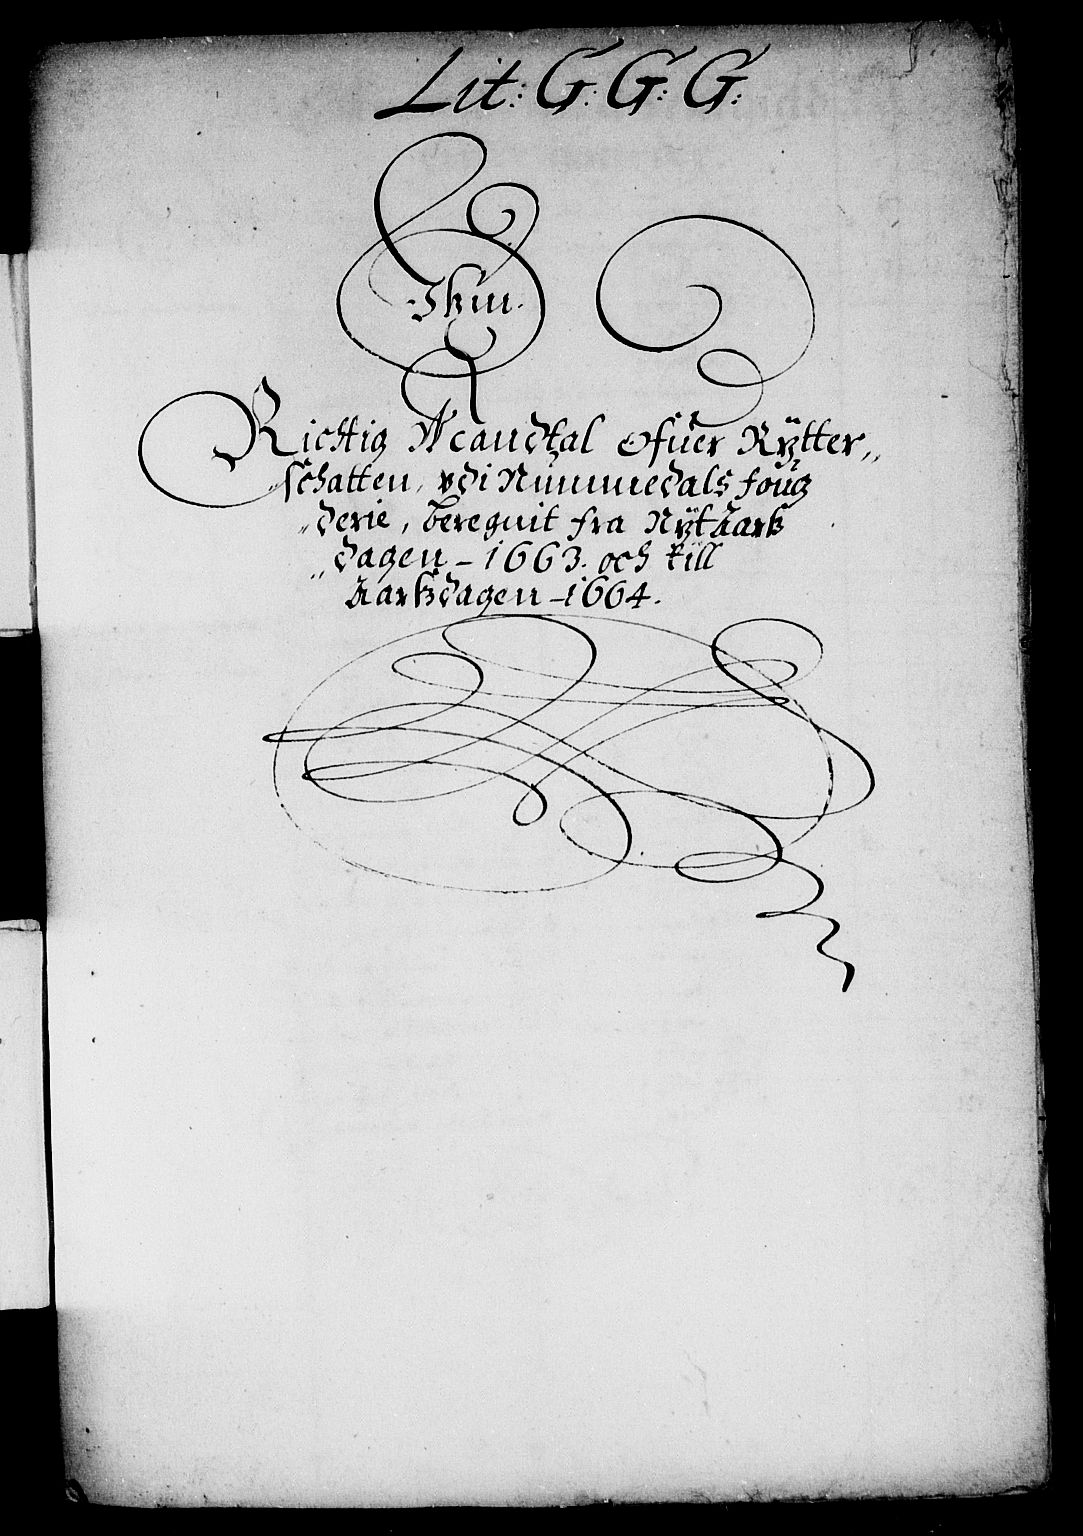 Lit: G: G: G:
Ehn
Richtig Mandtal Ofuer Rÿtter„
„schatten, vdi Nummedals foug
„derie, beregnit fra Nÿt Aarß
„dagen – 1663. och till
Aarßdagen – 1664.